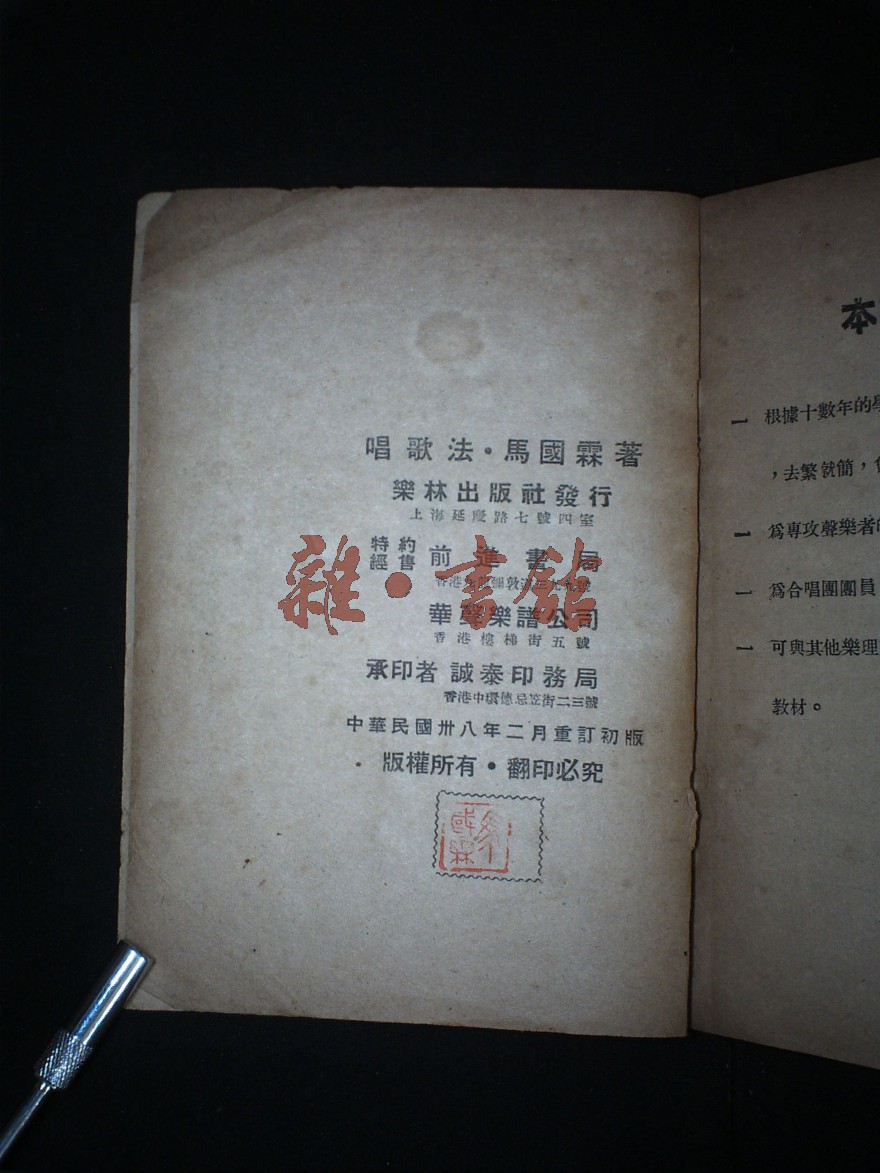 唱歌法・馬國霖著
樂林出版社發行
上海延慶路七號四室
特約經售 前進書局
香港九龍彌敦道
華聲樂譜公司
香港樓梯街五號
承印者 誠泰印務局
香港中環德忌笠街二三號
中華民國卅八年二月重訂初版
版權所有・翻印必究
馬國霖
雜・書館
本
一 根據十數年的學
，去繁就簡，
一 爲專攻聲樂者的
一 爲合唱團團員
一 可與其他樂理
教材。